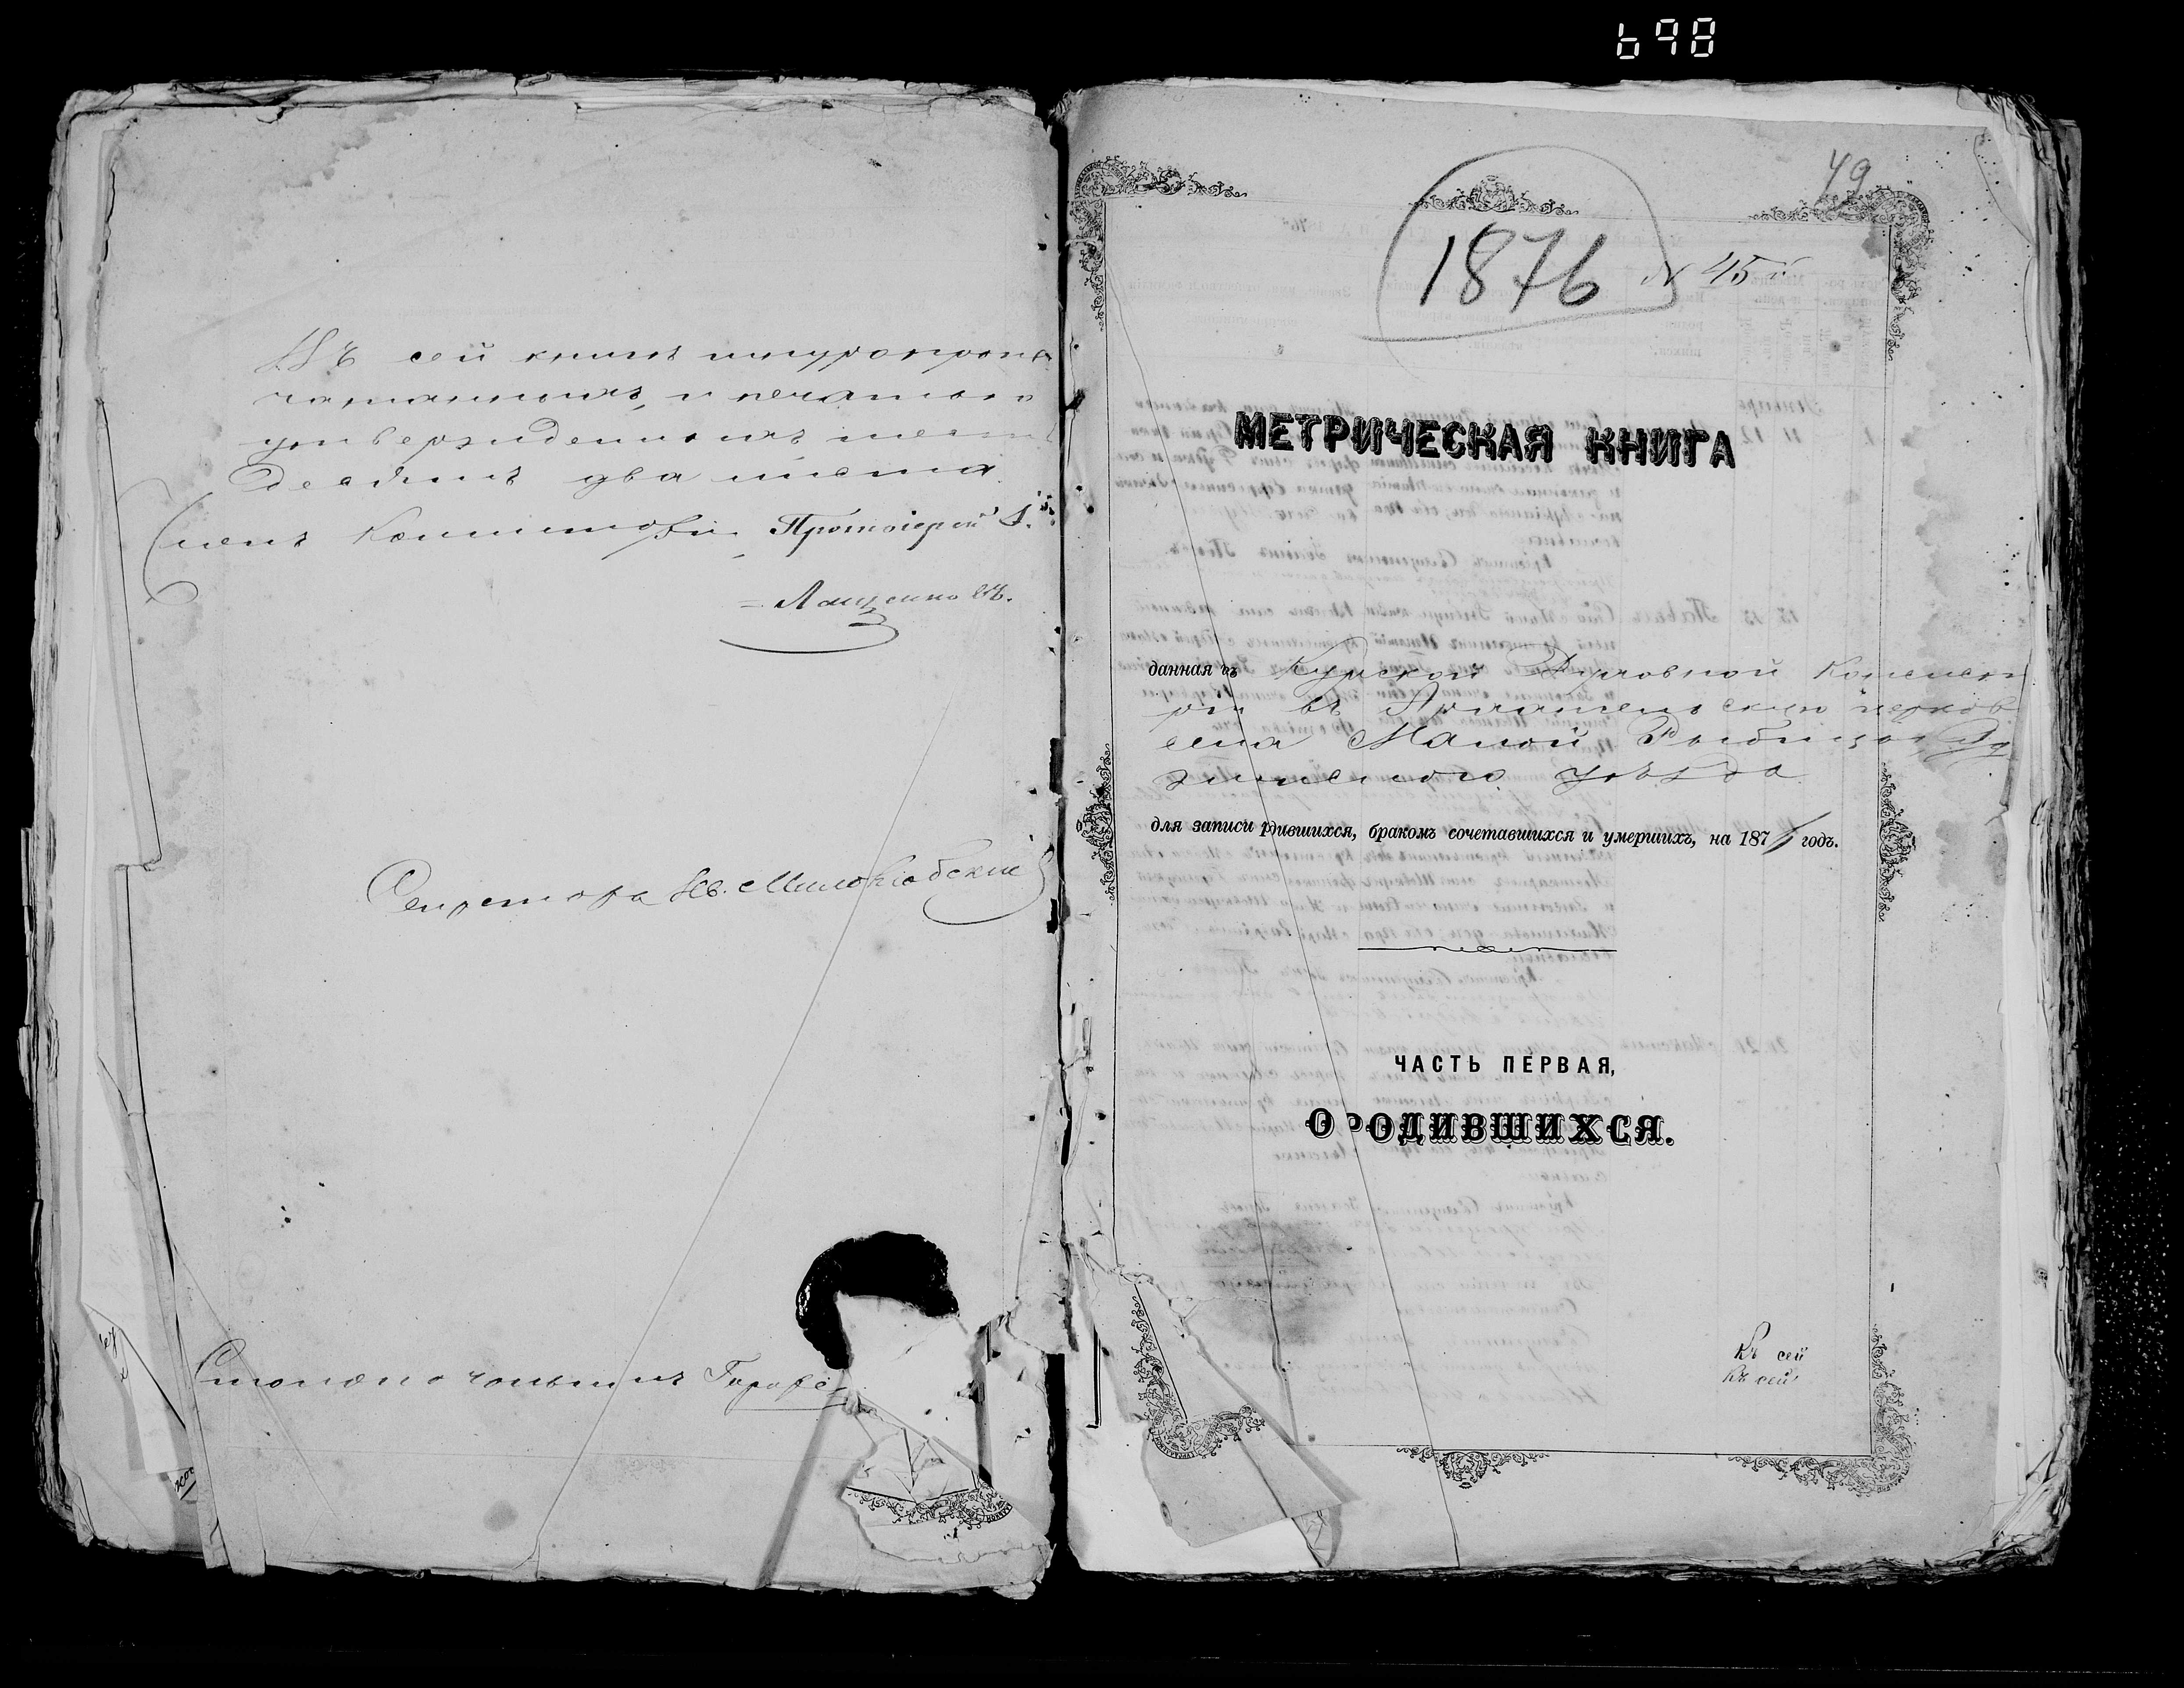 698
Въ сей книгѣ шнуропропе
чатанныхъ и печатью
утвержденныхъ шесть
десятъ два листа.
Членъ Консисторіи Протоіерей І.
Лащенковъ.
Секретарь Ив. Милославскій
Столоначальникъ
49
1876
N 45й
МЕТРИЧЕСКАЯ КНИГА
данная въ Курской Духовной Консисто
ріи въ Архангельскую церковь
села Малой Рыбицы Су
джанскаго уѣзда
для записи родившихся, бракомъ сочетавшихся и умершихъ, на 1876 годъ.
ЧАСТЬ ПЕРВАЯ,
О РОДИВШИХСЯ.
Къ сей
Къ сей